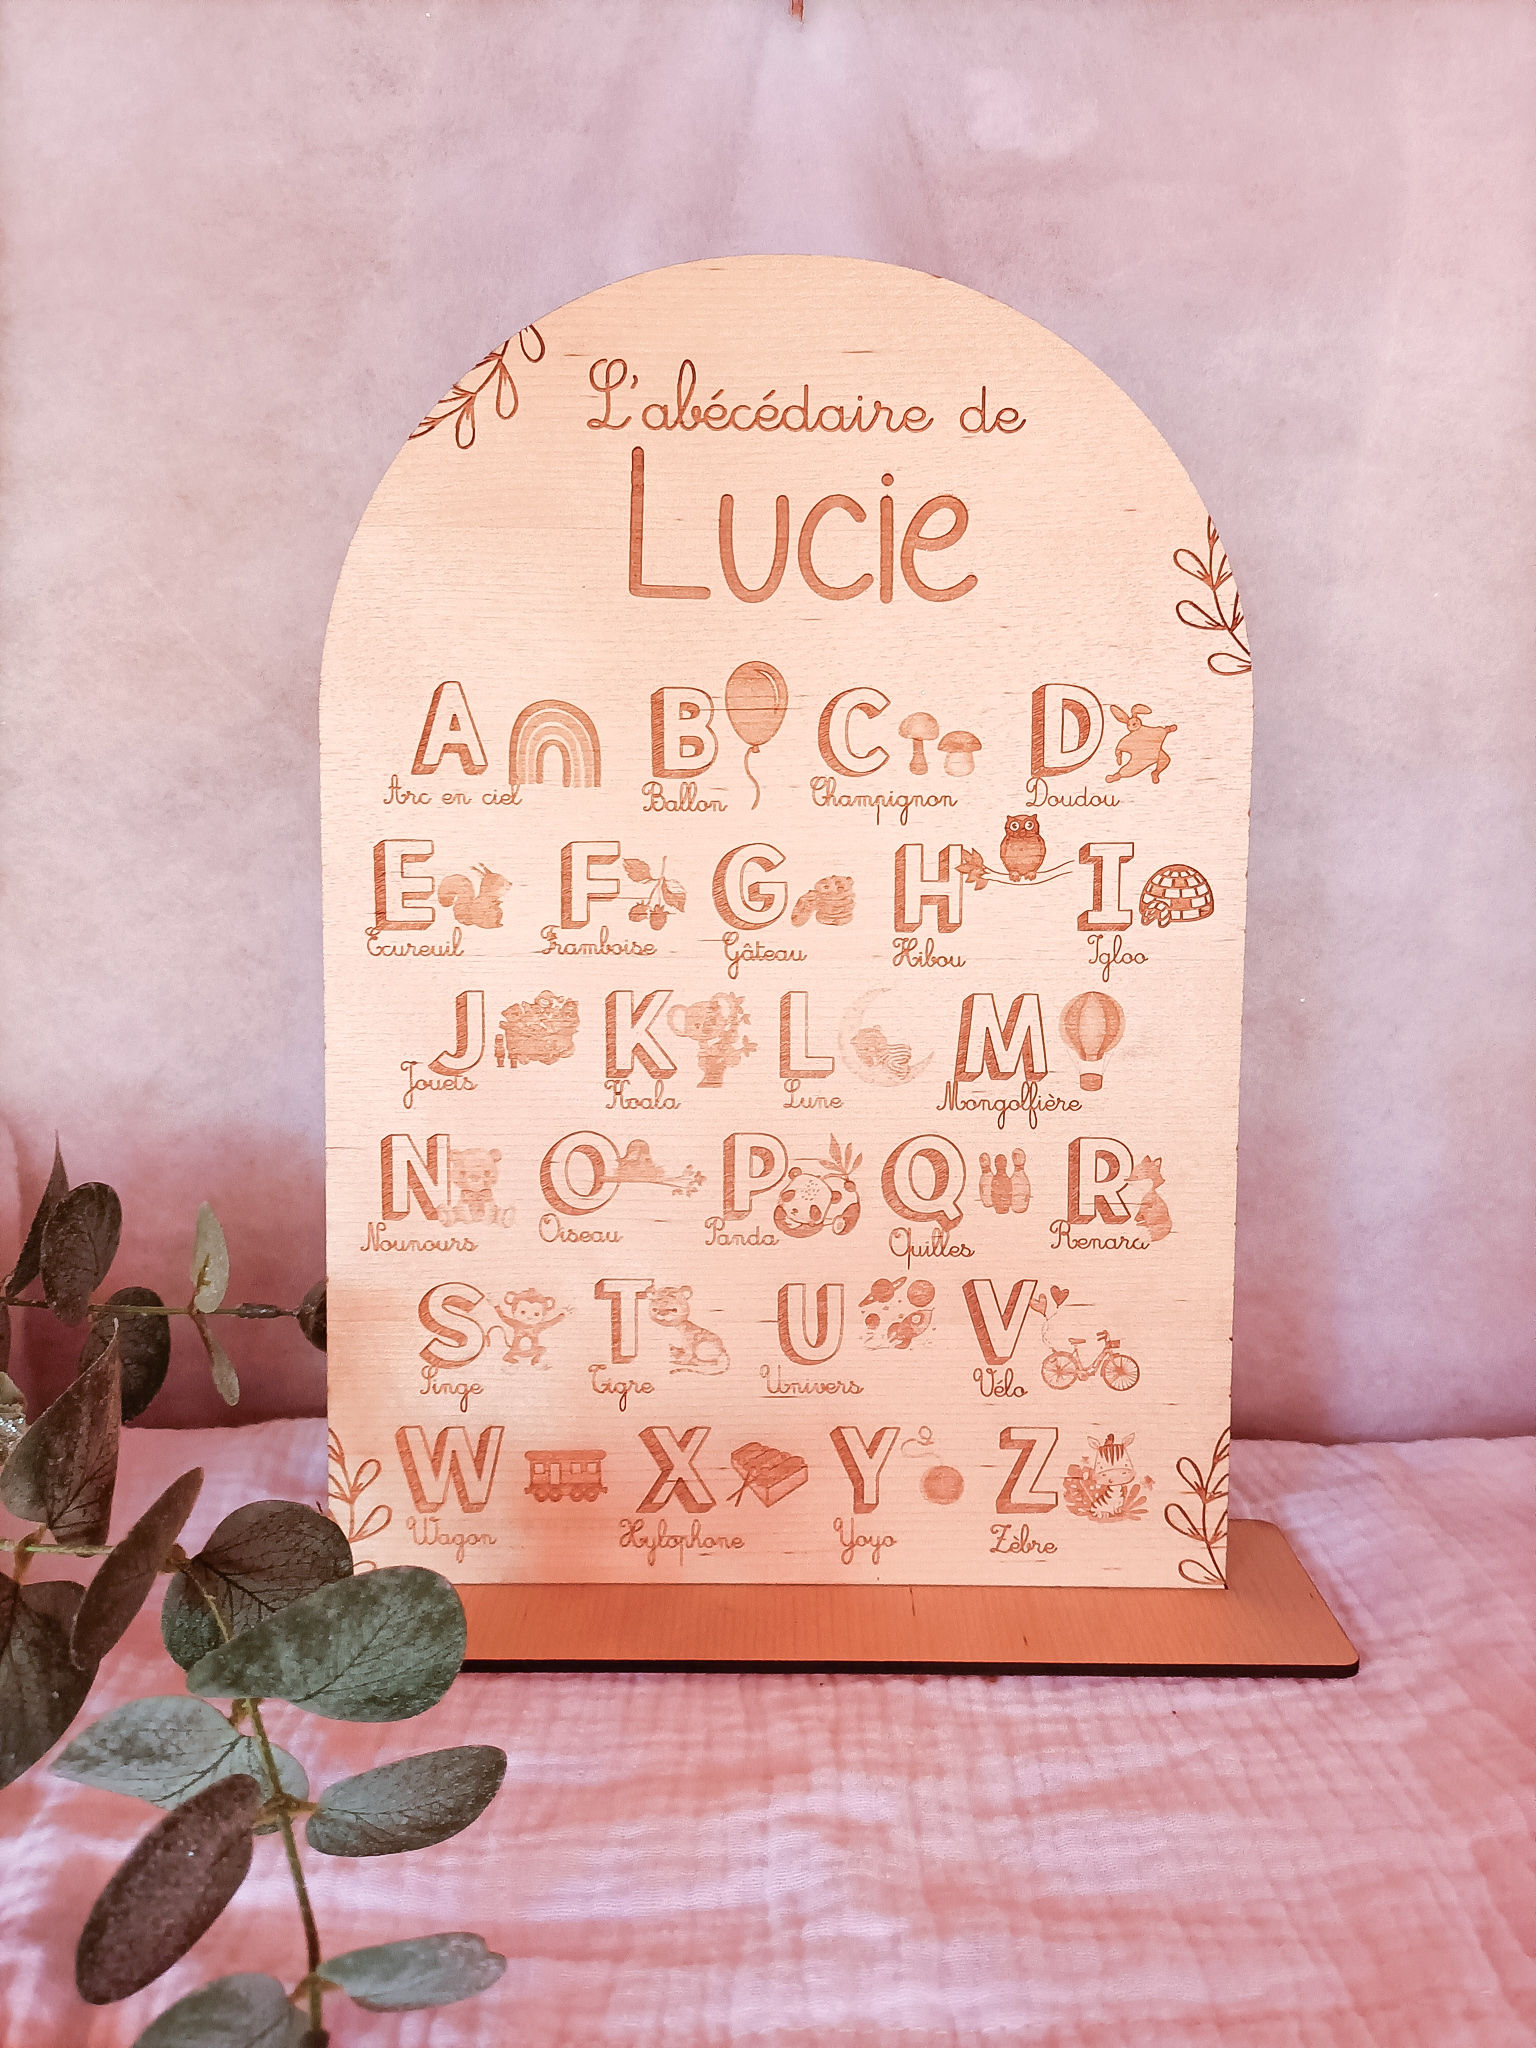 L'abécédaire de
Lucie
A B C D
Arc en ciel Ballon Champignon Doudou
E F G H I
Ecureuil Framboise Gâteau Hibou Igloo
J K L M
Jouets Koala Lune Mongolfière
N O P Q R
Nounours Oiseau Panda Quilles Renard
S T U V
Singe Tigre Univers Vélo
W X Y Z
Wagon Xylophone Yoyo Zèbre